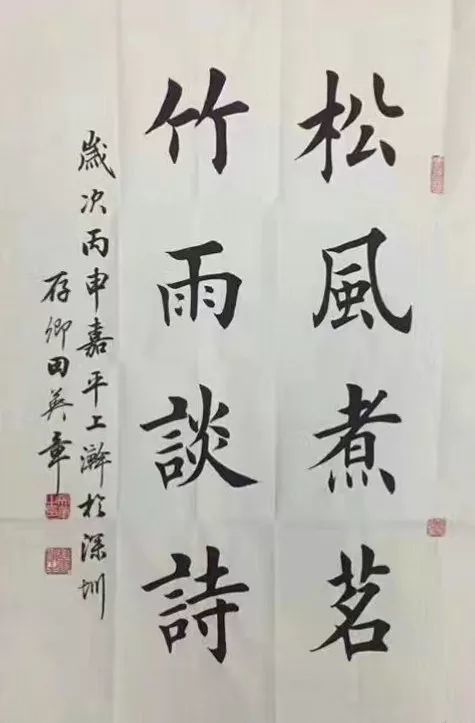 松風煮茗
竹雨談詩
歲次丙申嘉平上澣於深圳
存卿田英章